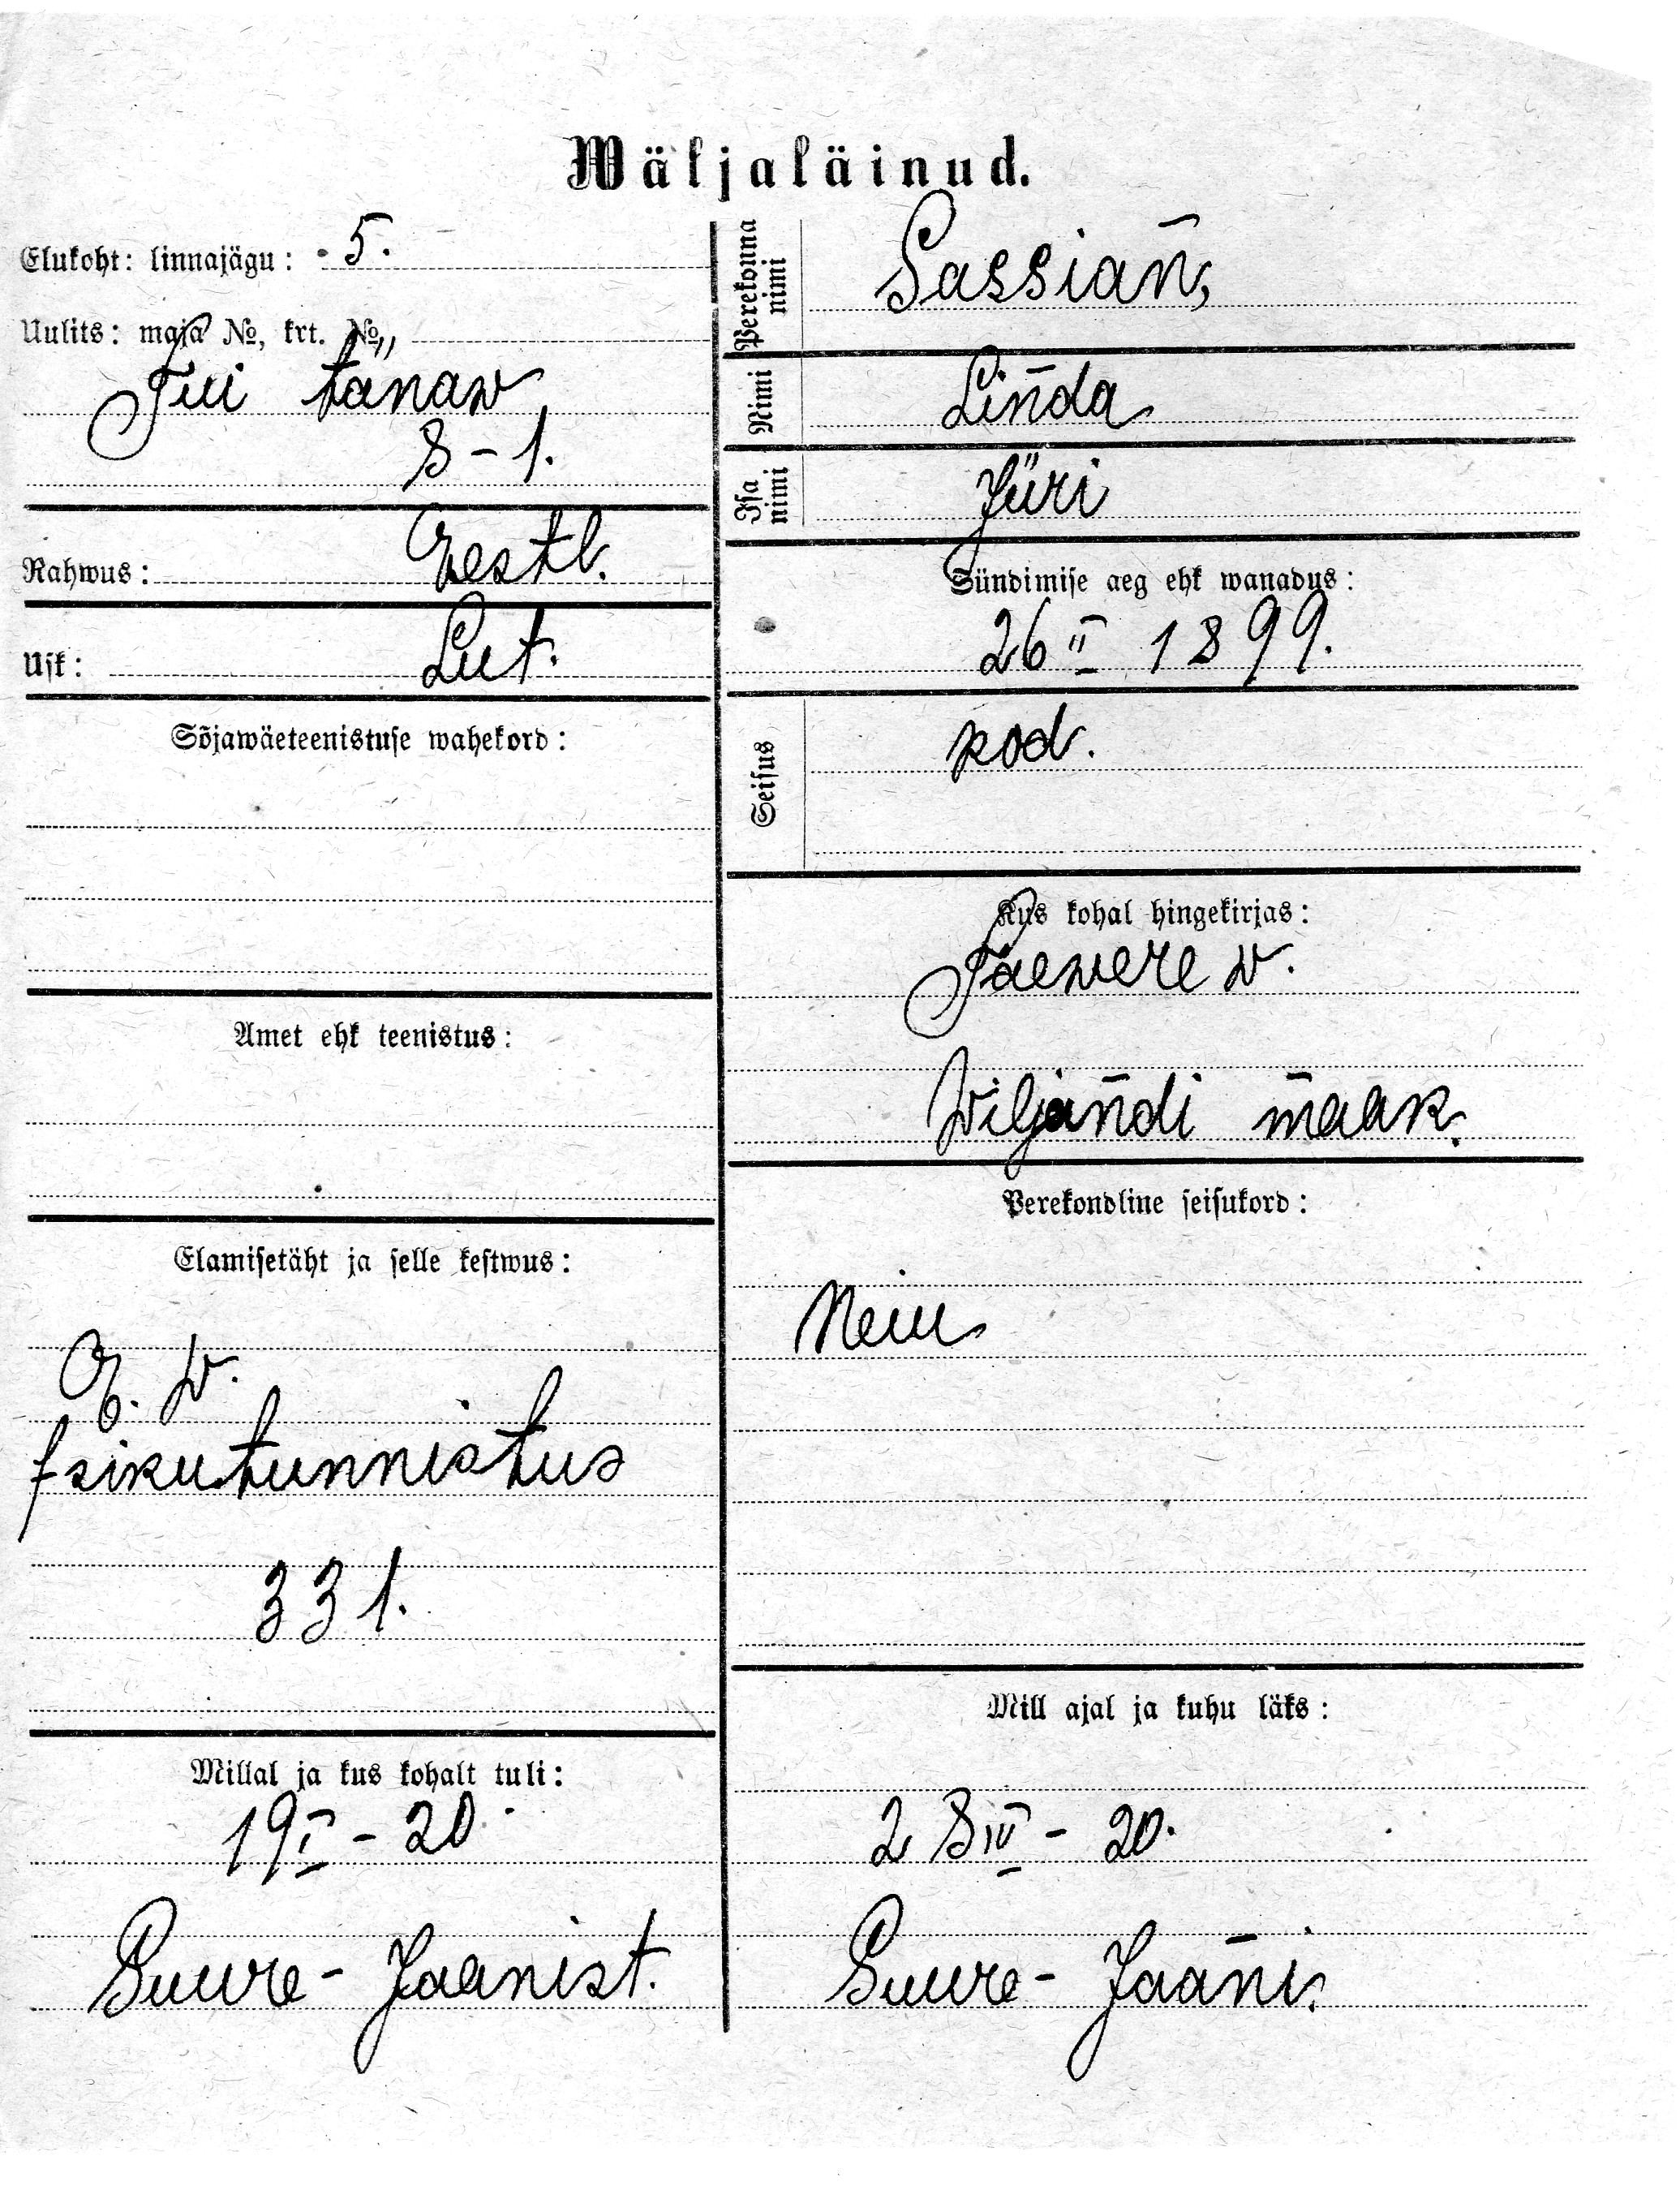 Wäljaläinud.
Elukoht: linnajägu: 5.
Uulits: maja №, krt. №
Tui tänaw
8-1.
Rahwus: Eestl.
Usk: Lut.
Sõjawäeteenistuse wahekord:
Amet ehk teenistus:
Elamisetäht ja selle kestwus:
E. W.
Isikutunnistus
331.
Millal ja kus kohalt tuli:
19 I - 20.
Suure-Jaanist.
Perekonna nimi
Sassian,
Nimi
Linda
Isa nimi
Jüri
Sündimise aeg ehk wanadus:
26 II 1899.
Seisus
kod.
Kus kohal hingekirjas:
Taewere w.
Wiljandi maak.
Perekondline seisukord:
Neiu
Mill ajal ja kuhu läks:
28 IV - 20.
Suure-Jaani.